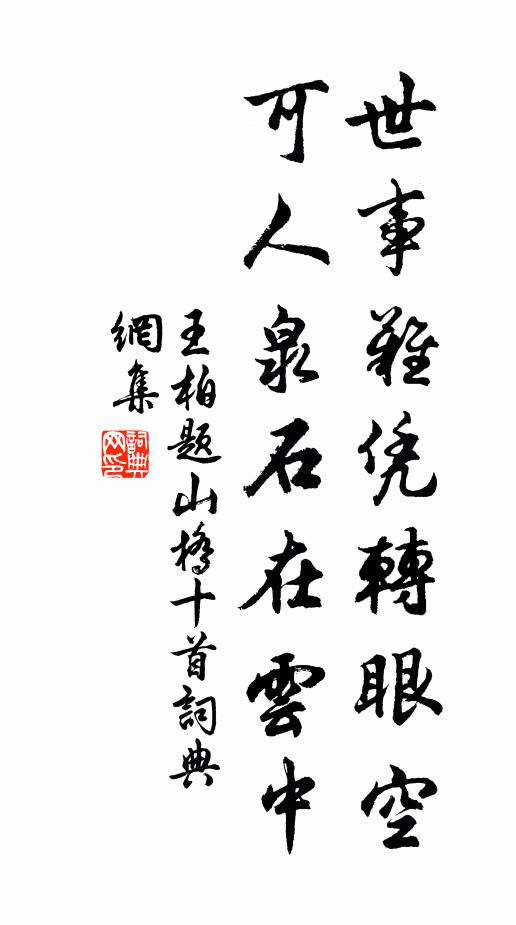 世事難凭轉眼空
可人泉石在雲中
王柏題山橋十首詞典
網集
詞典
网印